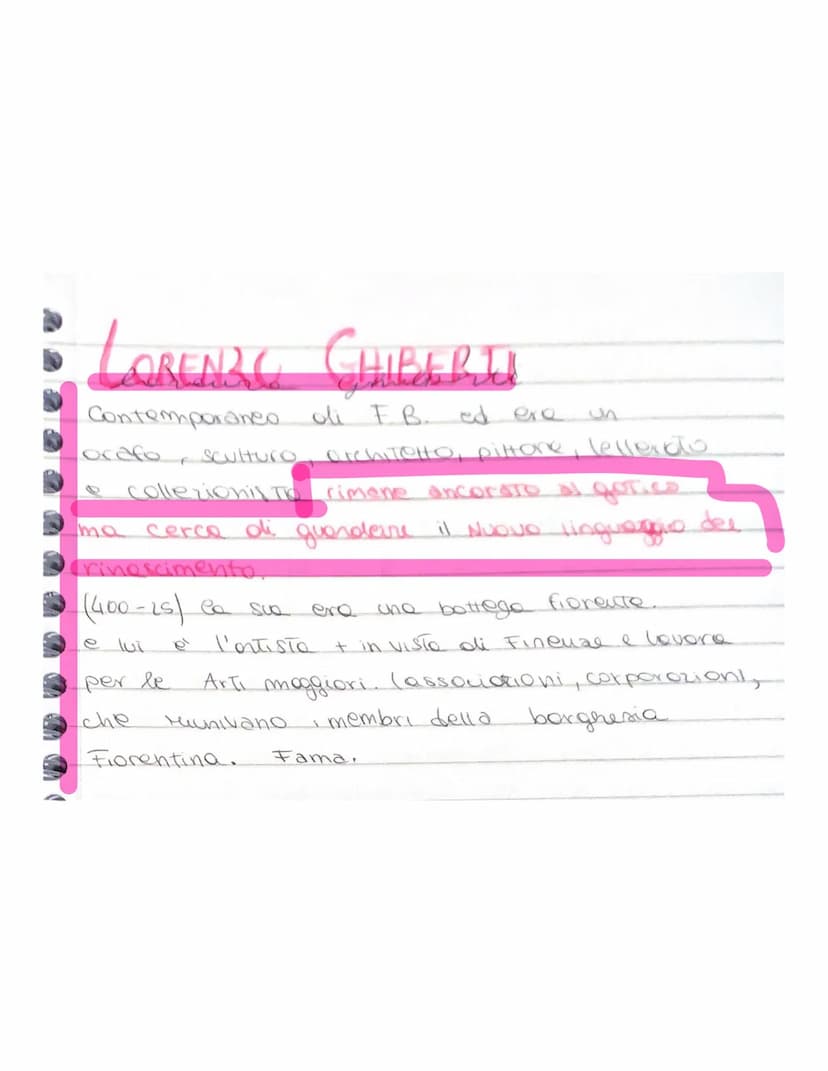 LORENZO GHIBERTI
Contemporaneo di F.B. ed era un
orafo, sculturo, architetto, pittore, letterato
e collezionista rimane ancorato al gotico
ma cerca di guardare il nuovo linguaggio del
rinascimento.
(400-25) la sua era una bottega fiorente.
e lui è l'artista + in vista di Firenze e lavora
per le Arti maggiori. (associazioni, corporazioni,
che riunivano i membri della borghesia
Fiorentina. Fama.